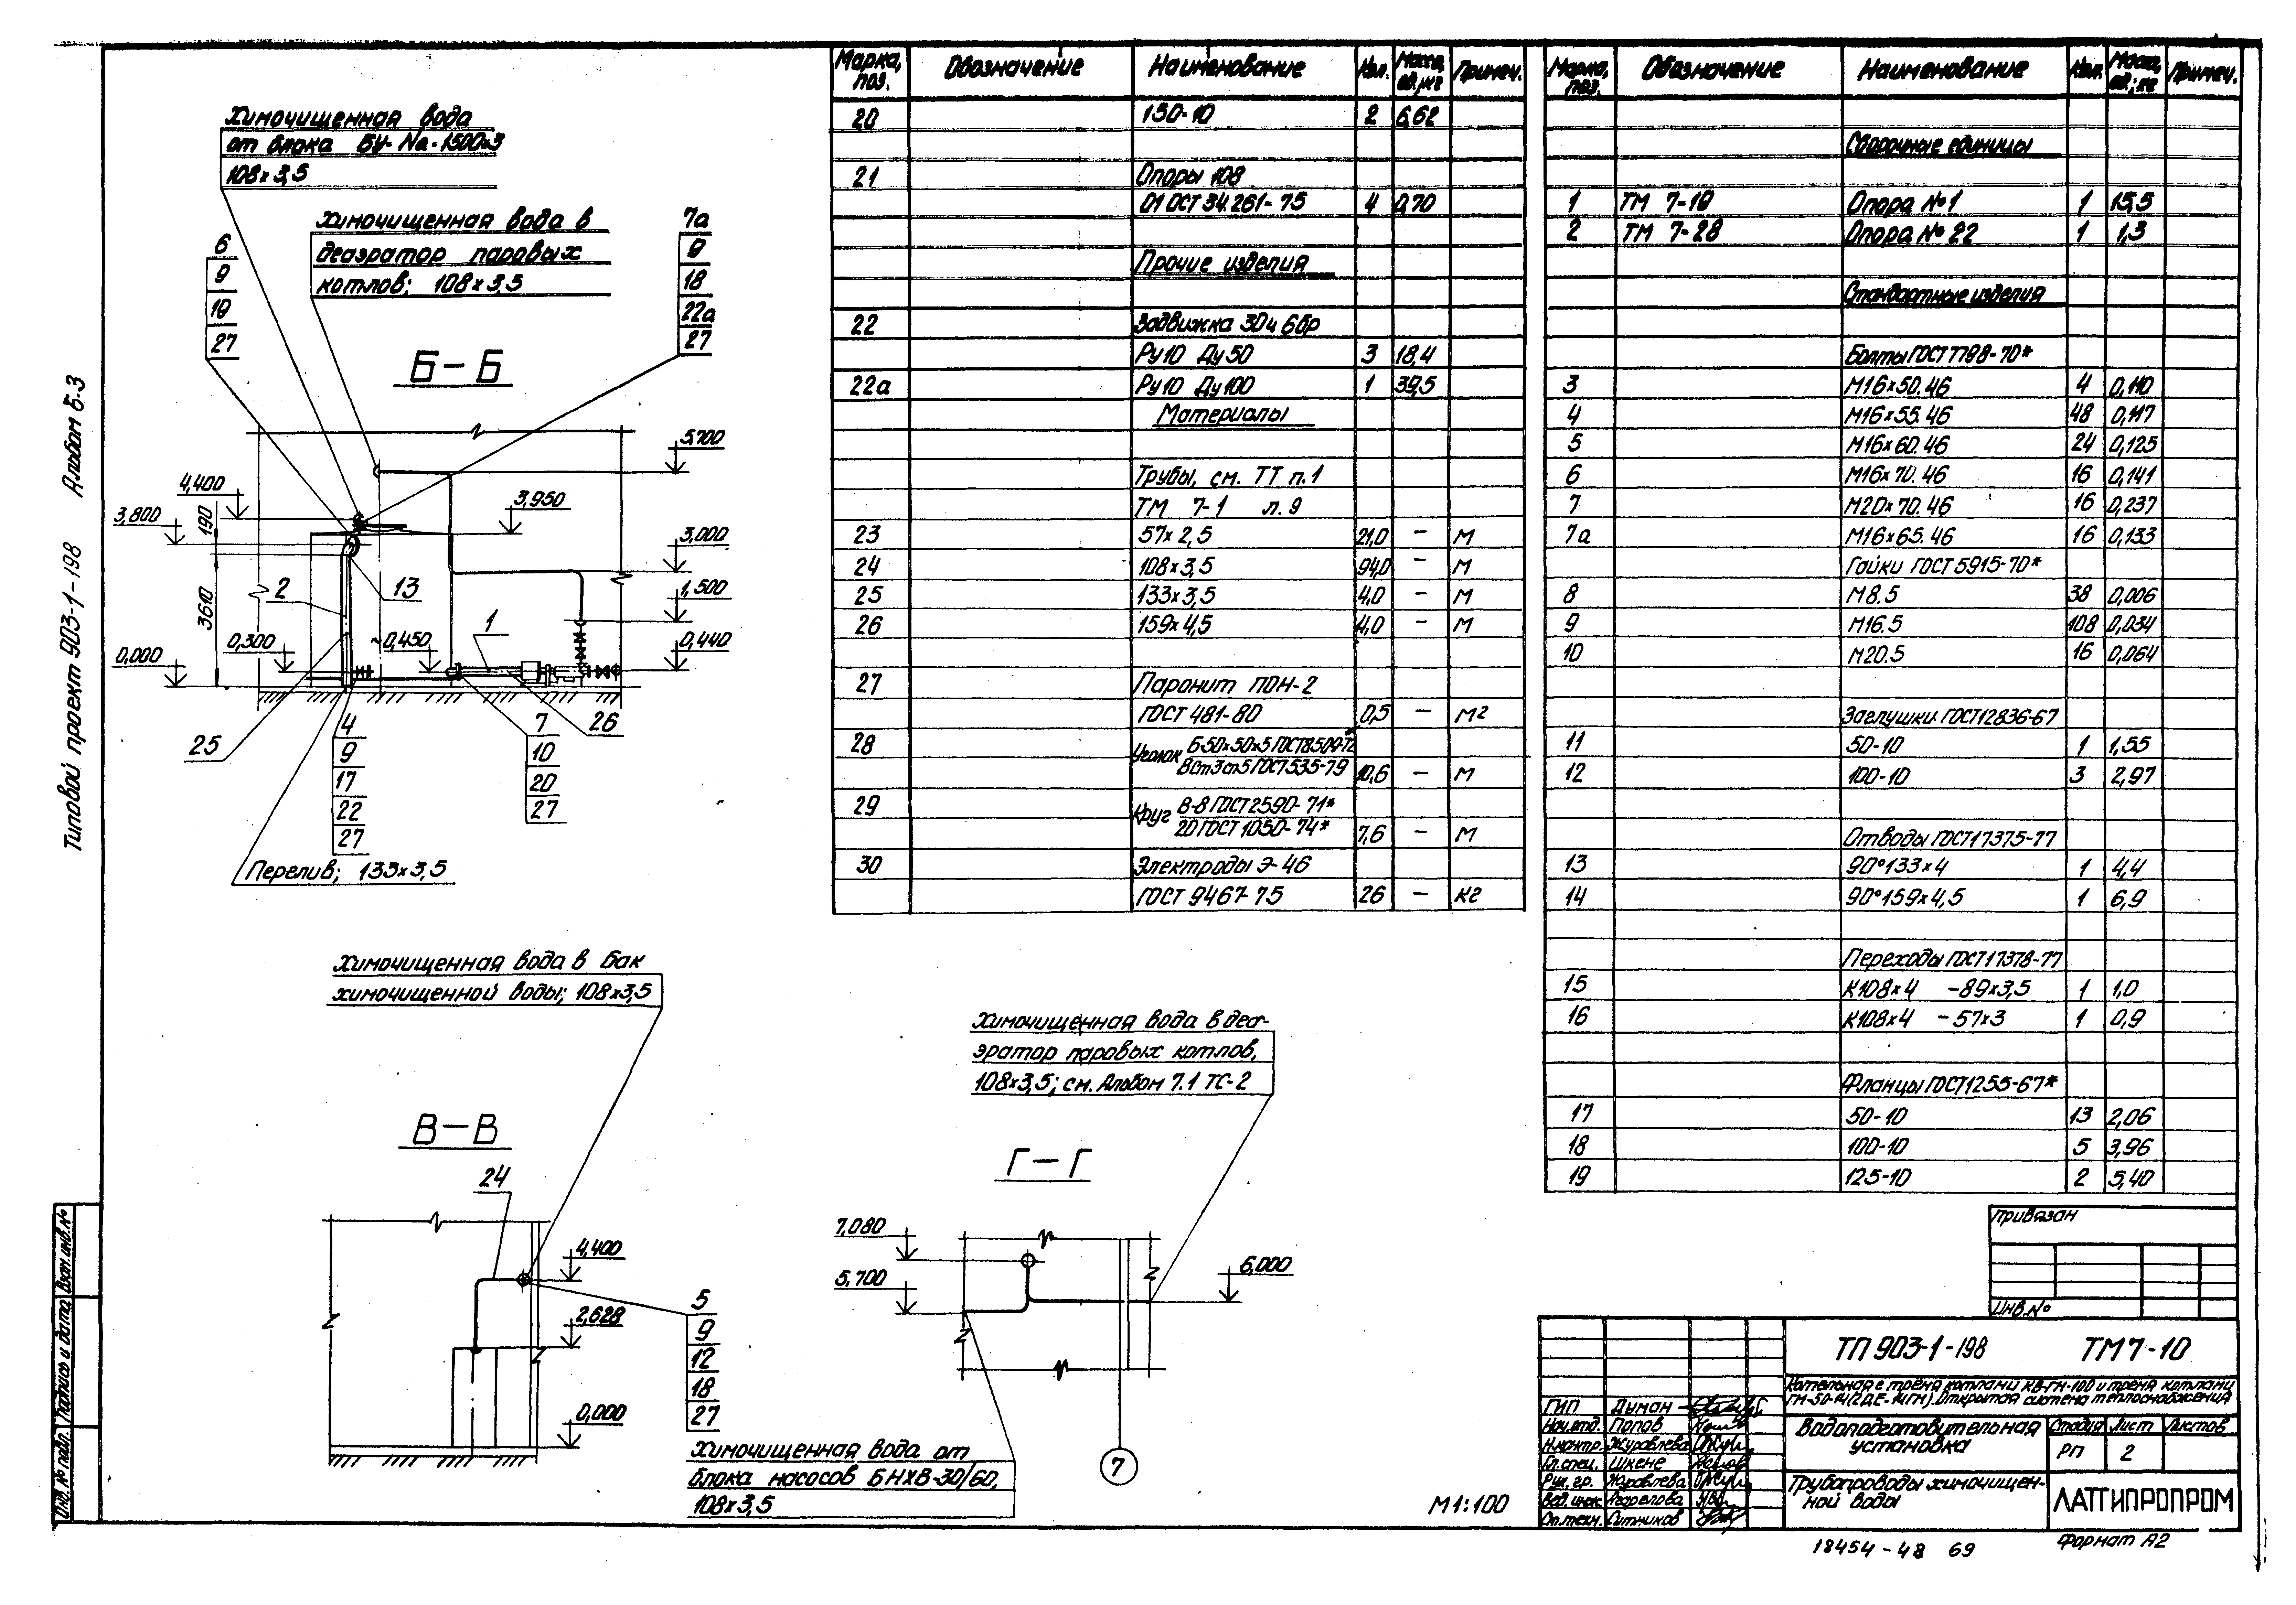 Типовой проект 903-1-198 Альбом 5.3
Химочищенная вода
от блока БУ-Na-1500×3
108×3,5
Химочищенная вода в
деаэратор паровых
котлов; 108×3,5
6
9
19
27
7а
9
18
22а
27
Б-Б
5,700
4,400
3,950
3,800
190
3,000
2
13
1,500
3610
0,300
~0,450
1
0,440
0,000
25
4
9
17
22
27
7
10
20
27
26
Перелив; 133×3,5
Химочищенная вода в бак
химочищенной воды; 108×3,5
В-В
24
4,400
2,628
0,000
5
9
12
18
27
Химочищенная вода в деа-
эратор паровых котлов,
108×3,5; см. Альбом 7.1 ТС-2
Г-Г
7,080
5,700
6,000
7
Химочищенная вода от
блока насосов БНХВ-30/60,
108×3,5
М1:100
Марка, поз. Обозначение Наименование Кол. Масса, ед., кг Примеч.
20 150-10 2 6,62
21 Опоры 108
01 ОСТ 34.261-75 4 0,70
Прочие изделия
22 Задвижка 30ч 6бр
Ру10 Ду50 3 18,4
22а Ру10 Ду100 1 39,5
Материалы
Трубы, см. ТТ п.1
ТМ 7-1 л.9
23 57×2,5 21,0 - М
24 108×3,5 94,0 - М
25 133×3,5 4,0 - М
26 159×4,5 4,0 - М
27 Паронит ПОН-2
ГОСТ 481-80 0,5 - м2
28 Уголок Б-50×50×5 ГОСТ 8509-72
ВСт3сп5 ГОСТ 535-79 10,6 - М
29 Круг В-8 ГОСТ 2590-71*
20 ГОСТ 1050-74* 7,6 - М
30 Электроды Э-46
ГОСТ 9467-75 26 - кг
Марка, поз. Обозначение Наименование Кол. Масса, ед., кг Примеч.
Сборочные единицы
1 ТМ 7-19 Опора №1 1 15,5
2 ТМ 7-28 Опора № 22 1 1,3
Стандартные изделия
Болты ГОСТ 7798-70*
3 М16×50.46 4 0,110
4 М16×55.46 48 0,117
5 М16×60.46 24 0,125
6 М16×70.46 16 0,141
7 М20×70.46 16 0,237
7а М16×65.46 16 0,133
Гайки ГОСТ 5915-70*
8 М8.5 38 0,006
9 М16.5 108 0,034
10 М20.5 16 0,064
Заглушки ГОСТ 12836-67
11 50-10 1 1,55
12 100-10 3 2,97
Отводы ГОСТ 17375-77
13 90°133×4 1 4,4
14 90°159×4,5 1 6,9
Переходы ГОСТ 17378-77
15 К108×4 -89×3,5 1 1,0
16 К108×4 -57×3 1 0,9
Фланцы ГОСТ 1255-67*
17 50-10 13 2,06
18 100-10 5 3,96
19 125-10 2 5,40
Привязан
Инв.№
ТП 903-1-198 ТМ7-10
Котельная с тремя котлами КВ-ГМ-100 и тремя котлами
ГМ-50-14(2ДЕ-14ГМ). Открытая система теплоснабжения
Водоподготовительная
установка
Стадия Лист Листов
РП 2
Трубопроводы химочищен-
ной воды
ЛАТГИПРОПРОМ
ГИП Думан
Нач.отд. Попов
Н.контр. Журавлева
Гл.спец. Шкене
Рук. гр. Журавлева
Вед. инж.
Ст.техн. Ситников
Инв.№ подл. Подпись и дата Взам.инв.№
18454-48 69
Формат А2